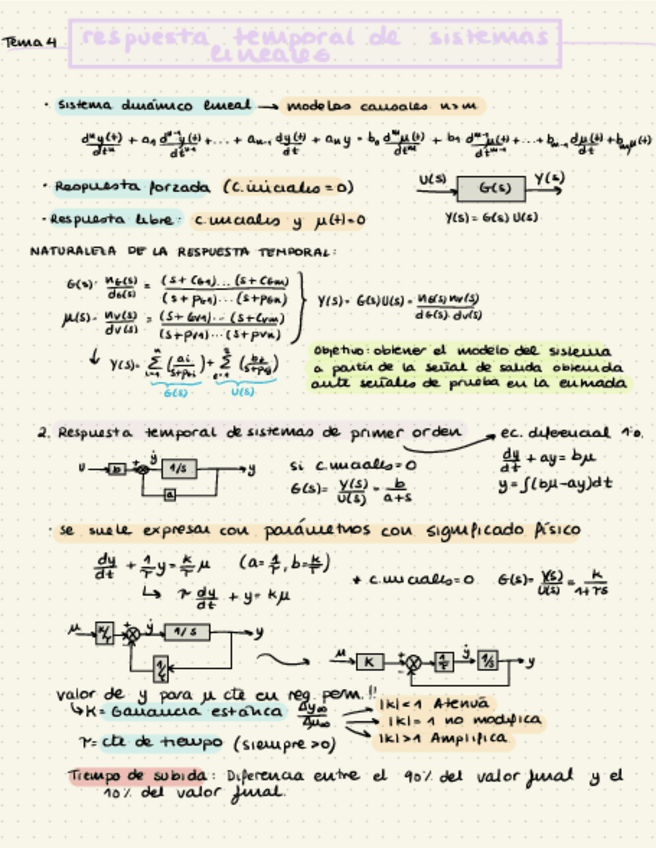 Tema 4
respuesta temporal de sistemas
lineales
· Sistema dinámico lineal → modelos causales n>m
dⁿy(t)/dtⁿ + a₁ dⁿ⁻¹y(t)/dtⁿ⁻¹ + ... + aₙ₋₁ dy(t)/dt + aₙy = b₀ dᵐμ(t)/dtᵐ + b₁ dᵐ⁻¹μ(t)/dtᵐ⁻¹ + ... + bₘ₋₁ dμ(t)/dt + bₘμ(t)
· Respuesta forzada (C. iniciales = 0)
U(s) G(s) Y(s)
· Respuesta libre: C. iniciales y μ(t)=0
Y(s) = G(s) U(s)
NATURALEZA DE LA RESPUESTA TEMPORAL:
G(s)= nG(s)/dG(s) = (s+CG1)...(s+CGm)/(s+PG1)...(s+PGn)
Y(s)= G(s)U(s)= nG(s) nU(s)/dG(s) dU(s)
↳ Y(s)=
G(s) U(s)
Objetivo: obtener el modelo del sistema
a partir de la señal de salida obtenida
ante señales de prueba en la entrada
2. Respuesta temporal de sistemas de primer orden → ec. diferencial 1º o.
U b + ẏ 1/s y
a
si c. iniciales = 0
G(s)= Y(s)/U(s) = b/(a+s)
dy/dt + ay = bμ
y = ∫(bμ-ay)dt
· se suele expresar con parámetros con significado físico
dy/dt + 1/τ y = k/τ μ (a=1/τ, b=k/τ)
↳ τ dy/dt + y = kμ
* c. iniciales = 0 G(s)= Y(s)/U(s) = k/(1+τs)
μ k/τ + ẏ 1/s y
1/τ
μ K + 1/τ ẏ 1/s y
-
valor de y para μ cte en reg. perm. !!
↳ K= Ganancia estática Δy∞/Δμ∞
|k|<1 Atenúa
|k|=1 no modifica
|k|>1 Amplifica
τ= cte de tiempo (siempre >0)
Tiempo de subida: Diferencia entre el 90% del valor final y el
10% del valor final.